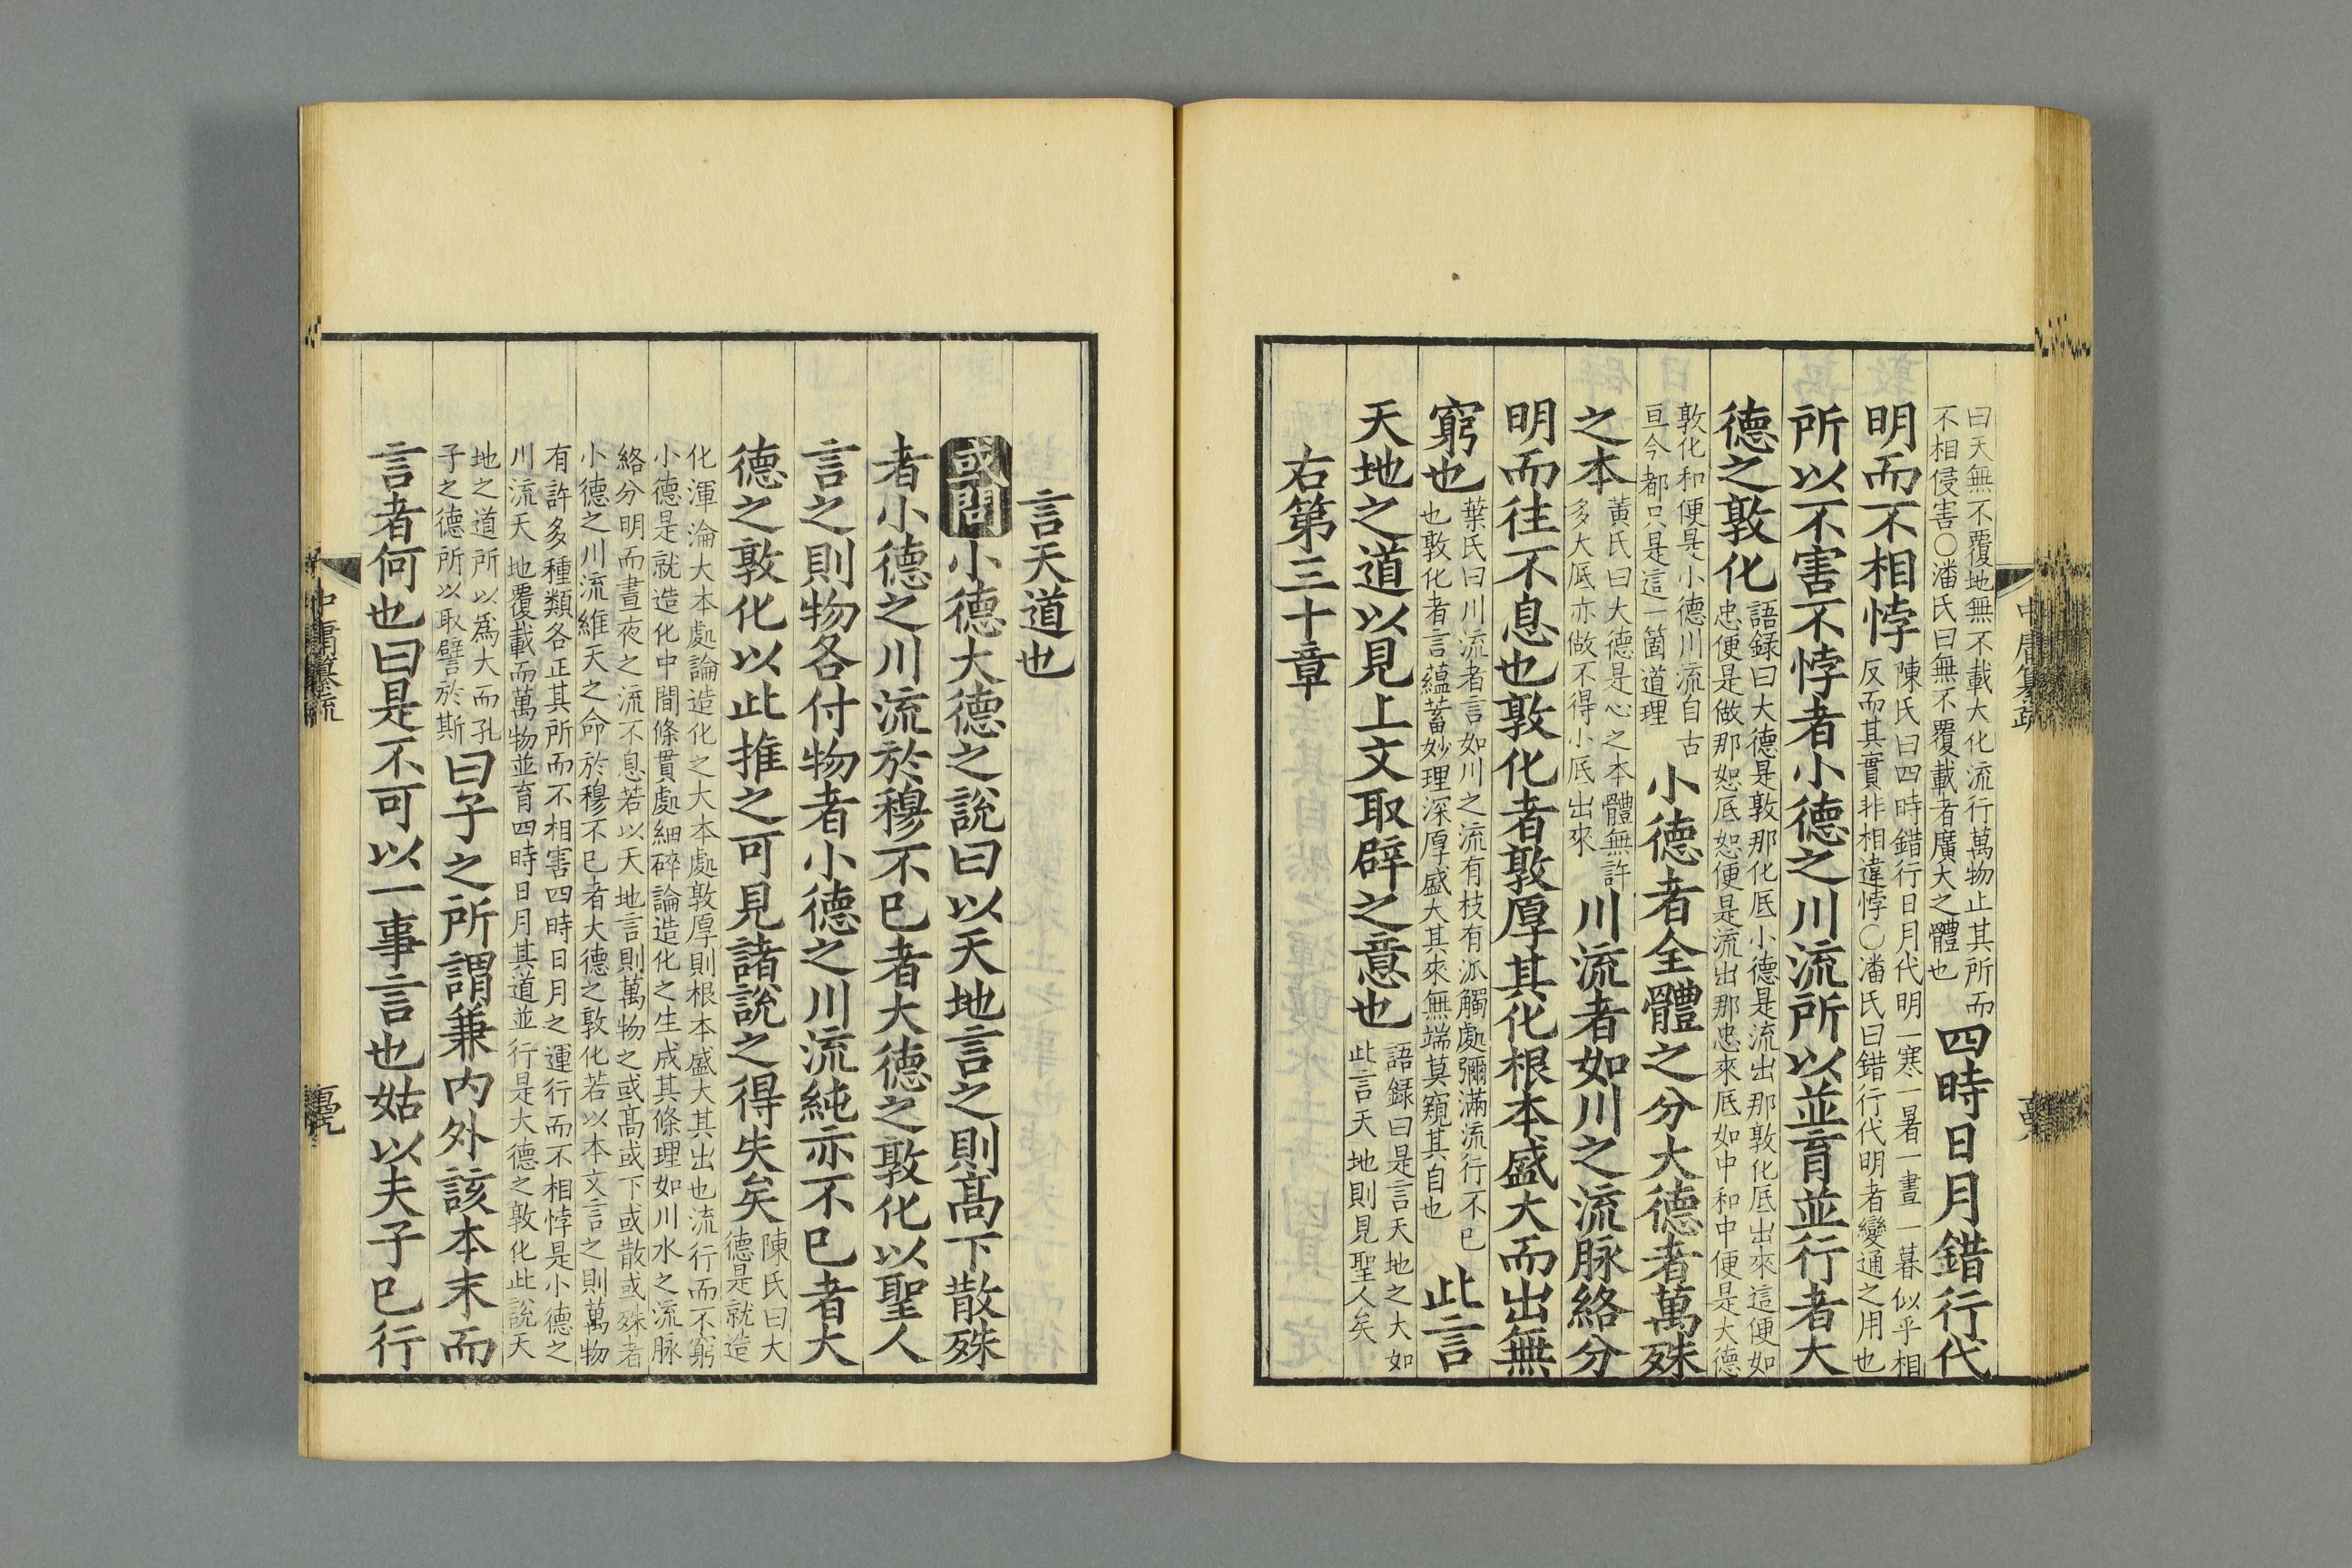 曰天無不覆地無不載大化流行萬物止其所而
不相侵害○潘氏曰無不覆載者廣大之體也
四時日月錯行代
明而不相悖
陳氏曰四時錯行日月代明一寒一暑一晝一暮似乎相
反而其實非相違悖○潘氏曰錯行代明者變通之用也
所以不害不悖者小德之川流所以並育並行者大
德之敦化
語録曰大德是敦那化底小德是流出那敦化底出來這便如
忠便是做那恕底恕便是流出那忠來底如中和中便是大德
敦化和便是小德川流自古
亘今都只是這一箇道理
小德者全體之分大德者萬殊
之本
黃氏曰大德是心之本體無許
多大底亦做不得小底出來
川流者如川之流脉絡分
明而往不息也敦化者敦厚其化根本盛大而出無
窮也
葉氏曰川流者言如川之流有枝有派觸處彌滿流行不已
也敦化者言蘊蓄妙理深厚盛大其來無端莫窺其自也
此言
天地之道以見上文取辟之意也
語録曰是言天地之大如
此言天地則見聖人矣
右第三十章
言天道也
或問小德大德之說曰以天地言之則高下散殊
者小德之川流於穆不已者大德之敦化以聖人
言之則物各付物者小德之川流純亦不已者大
德之敦化以此推之可見諸說之得失矣
陳氏曰大
德是就造
化渾淪大本處論造化之大本處敦厚則根本盛大其出也流行而不窮
小德是就造化中間條貫處細碎論造化之生成其條理如川水之流脉
絡分明而晝夜之流不息若以天地言則萬物之或高或下或散或殊者
小德之川流維天之命於穆不已者大德之敦化若以本文言之則萬物
有許多種類各正其所而不相害四時日月之運行而不相悖是小德之
川流天地覆載而萬物並育四時日月其道並行是大德之敦化此說天
地之道所以爲大而孔
子之德所以取譬於斯
曰子之所謂兼内外該本末而
言者何也曰是不可以一事言也姑以夫子已行
中庸纂疏